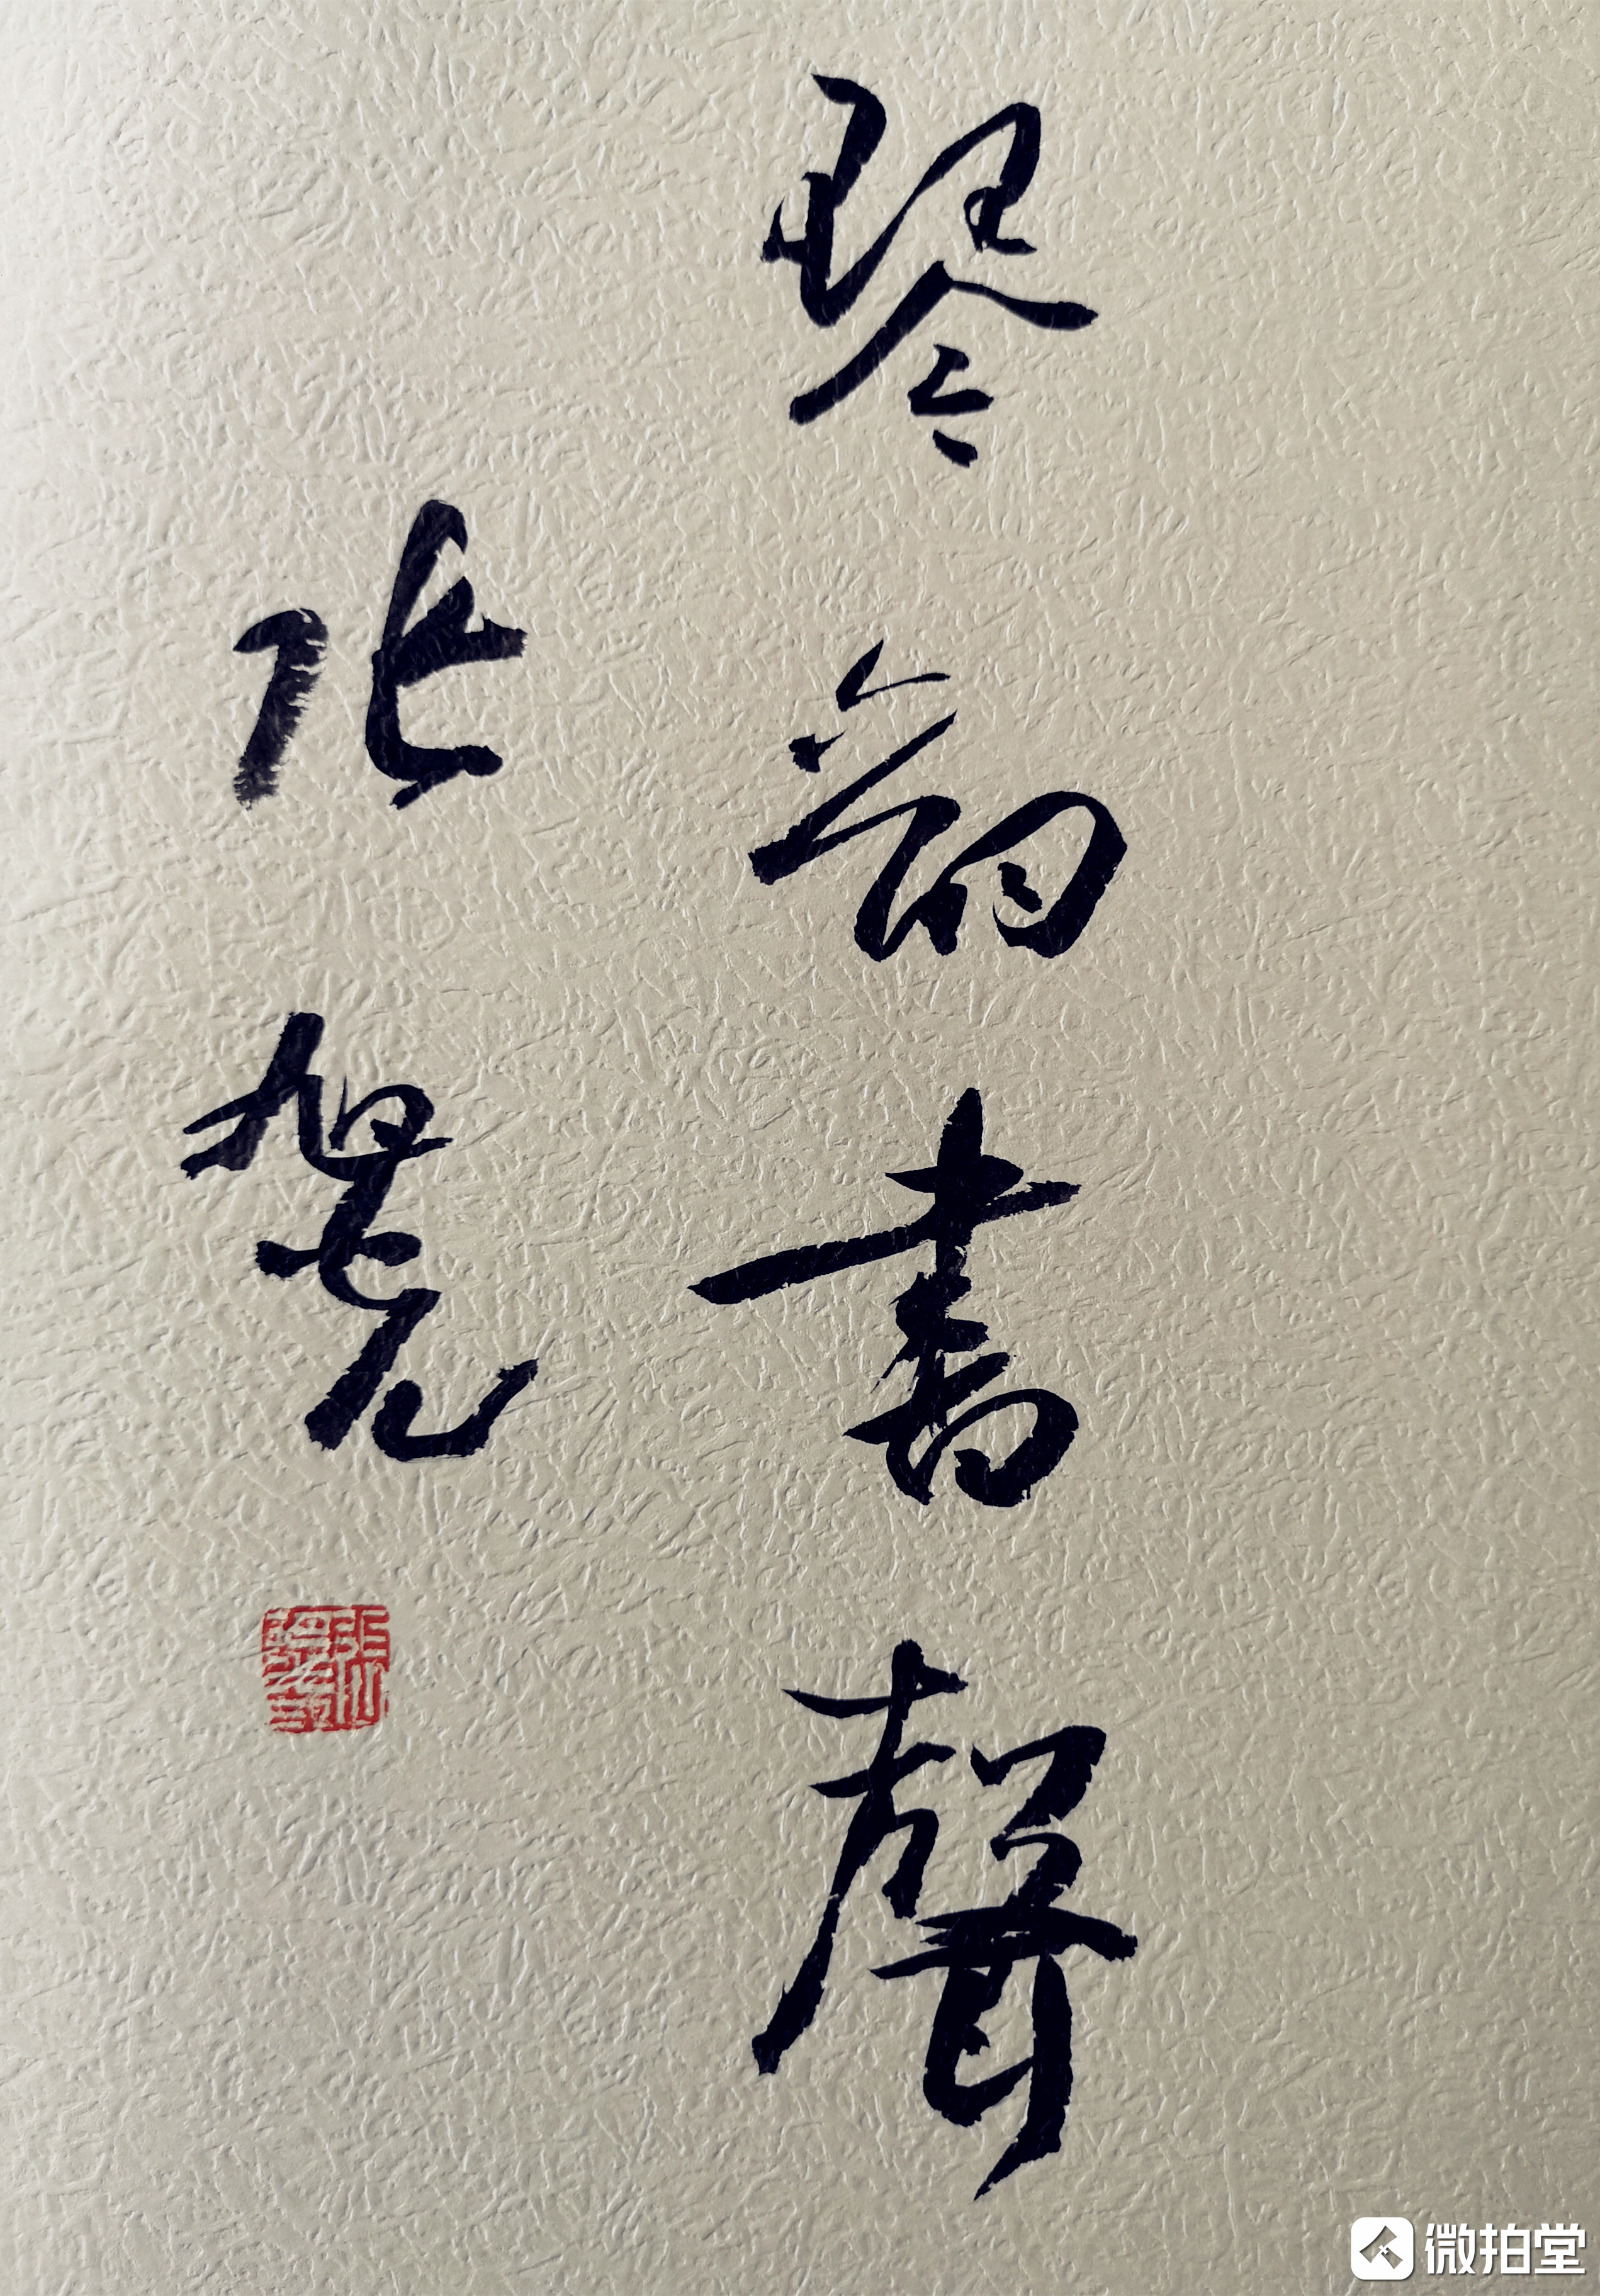 琴韵書聲
张旭光
微拍堂